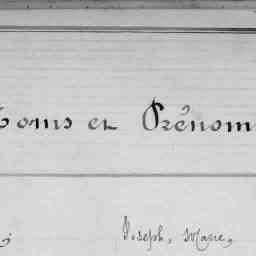 Noms et Prénoms
Joseph, Marie,